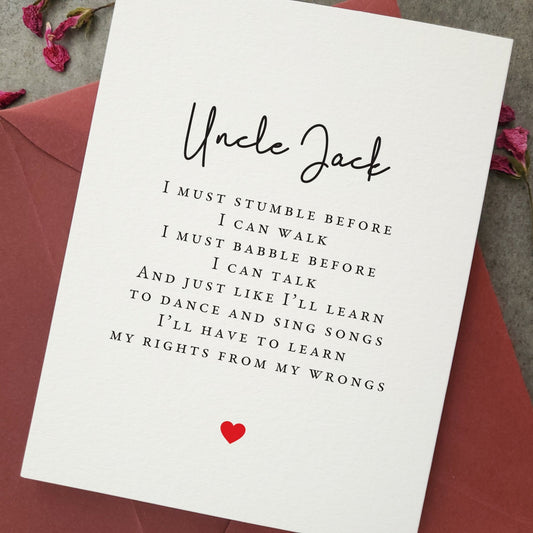 Uncle Jack
I MUST STUMBLE BEFORE
I CAN WALK
I MUST BABBLE BEFORE
I CAN TALK
AND JUST LIKE I'LL LEARN
TO DANCE AND SING SONGS
I'LL HAVE TO LEARN
MY RIGHTS FROM MY WRONGS